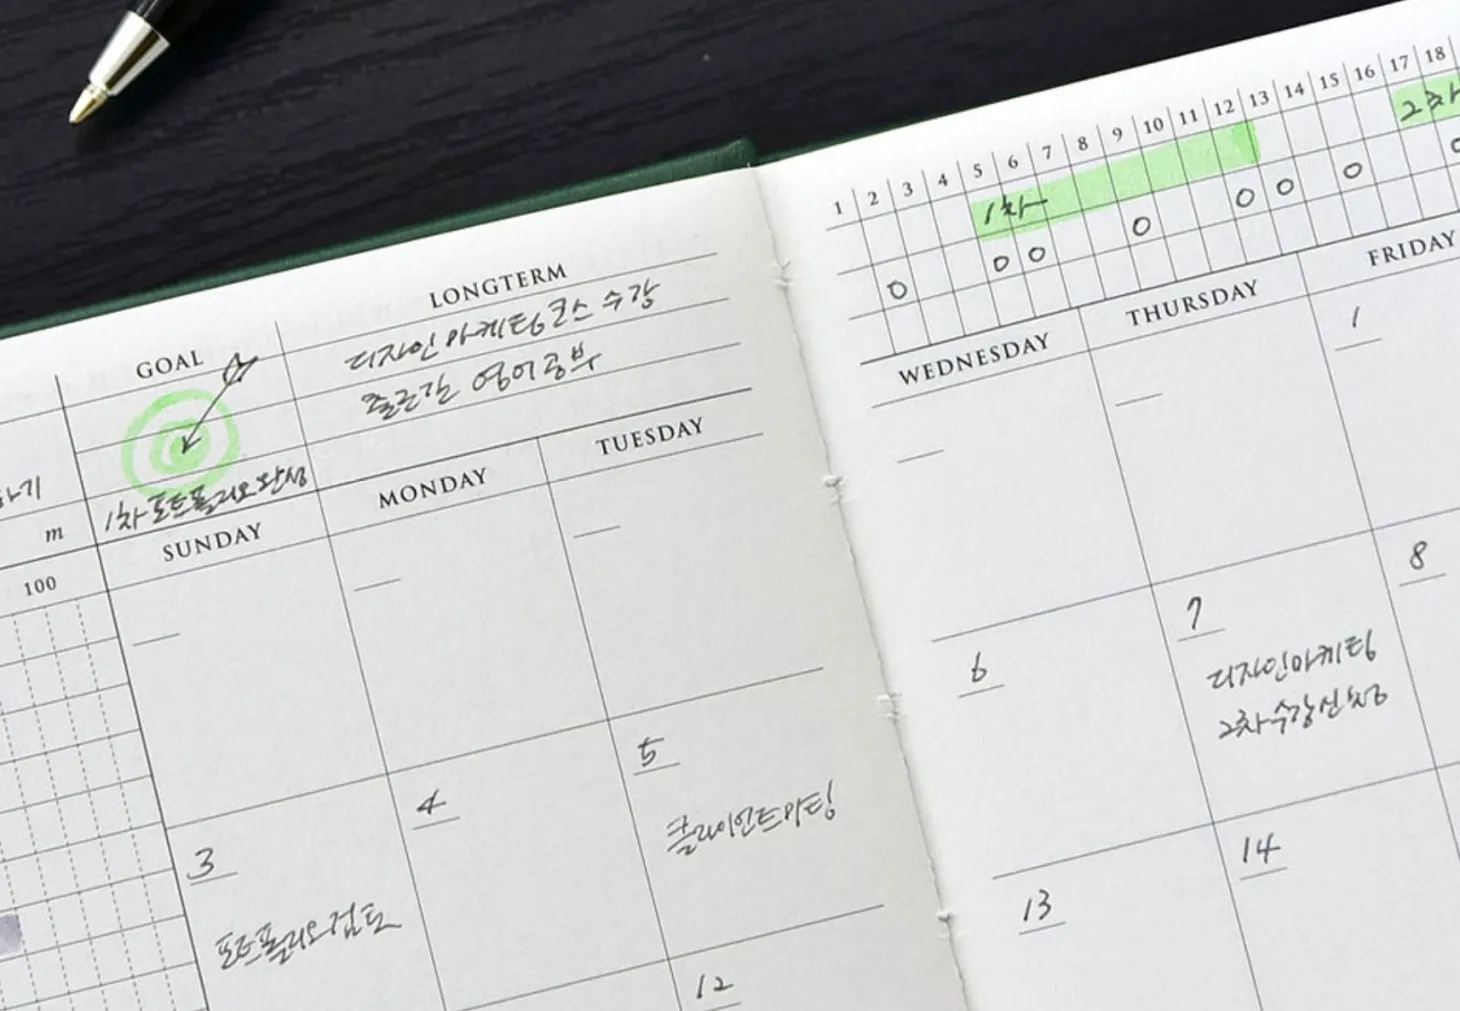 GOAL
1차 포트폴리오 완성
LONGTERM
디자인 마케팅 코스 수강
출근길 영어공부
하기
m
100
SUNDAY
MONDAY
TUESDAY
3
포트폴리오 검토
4
5
클라이언트 미팅
12
1 2 3 4 5 6 7 8 9 10 11 12 13 14 15 16 17 18
1차
2차
WEDNESDAY
THURSDAY
FRIDAY
1
6
7
디자인마케팅
2차 수강신청
8
13
14